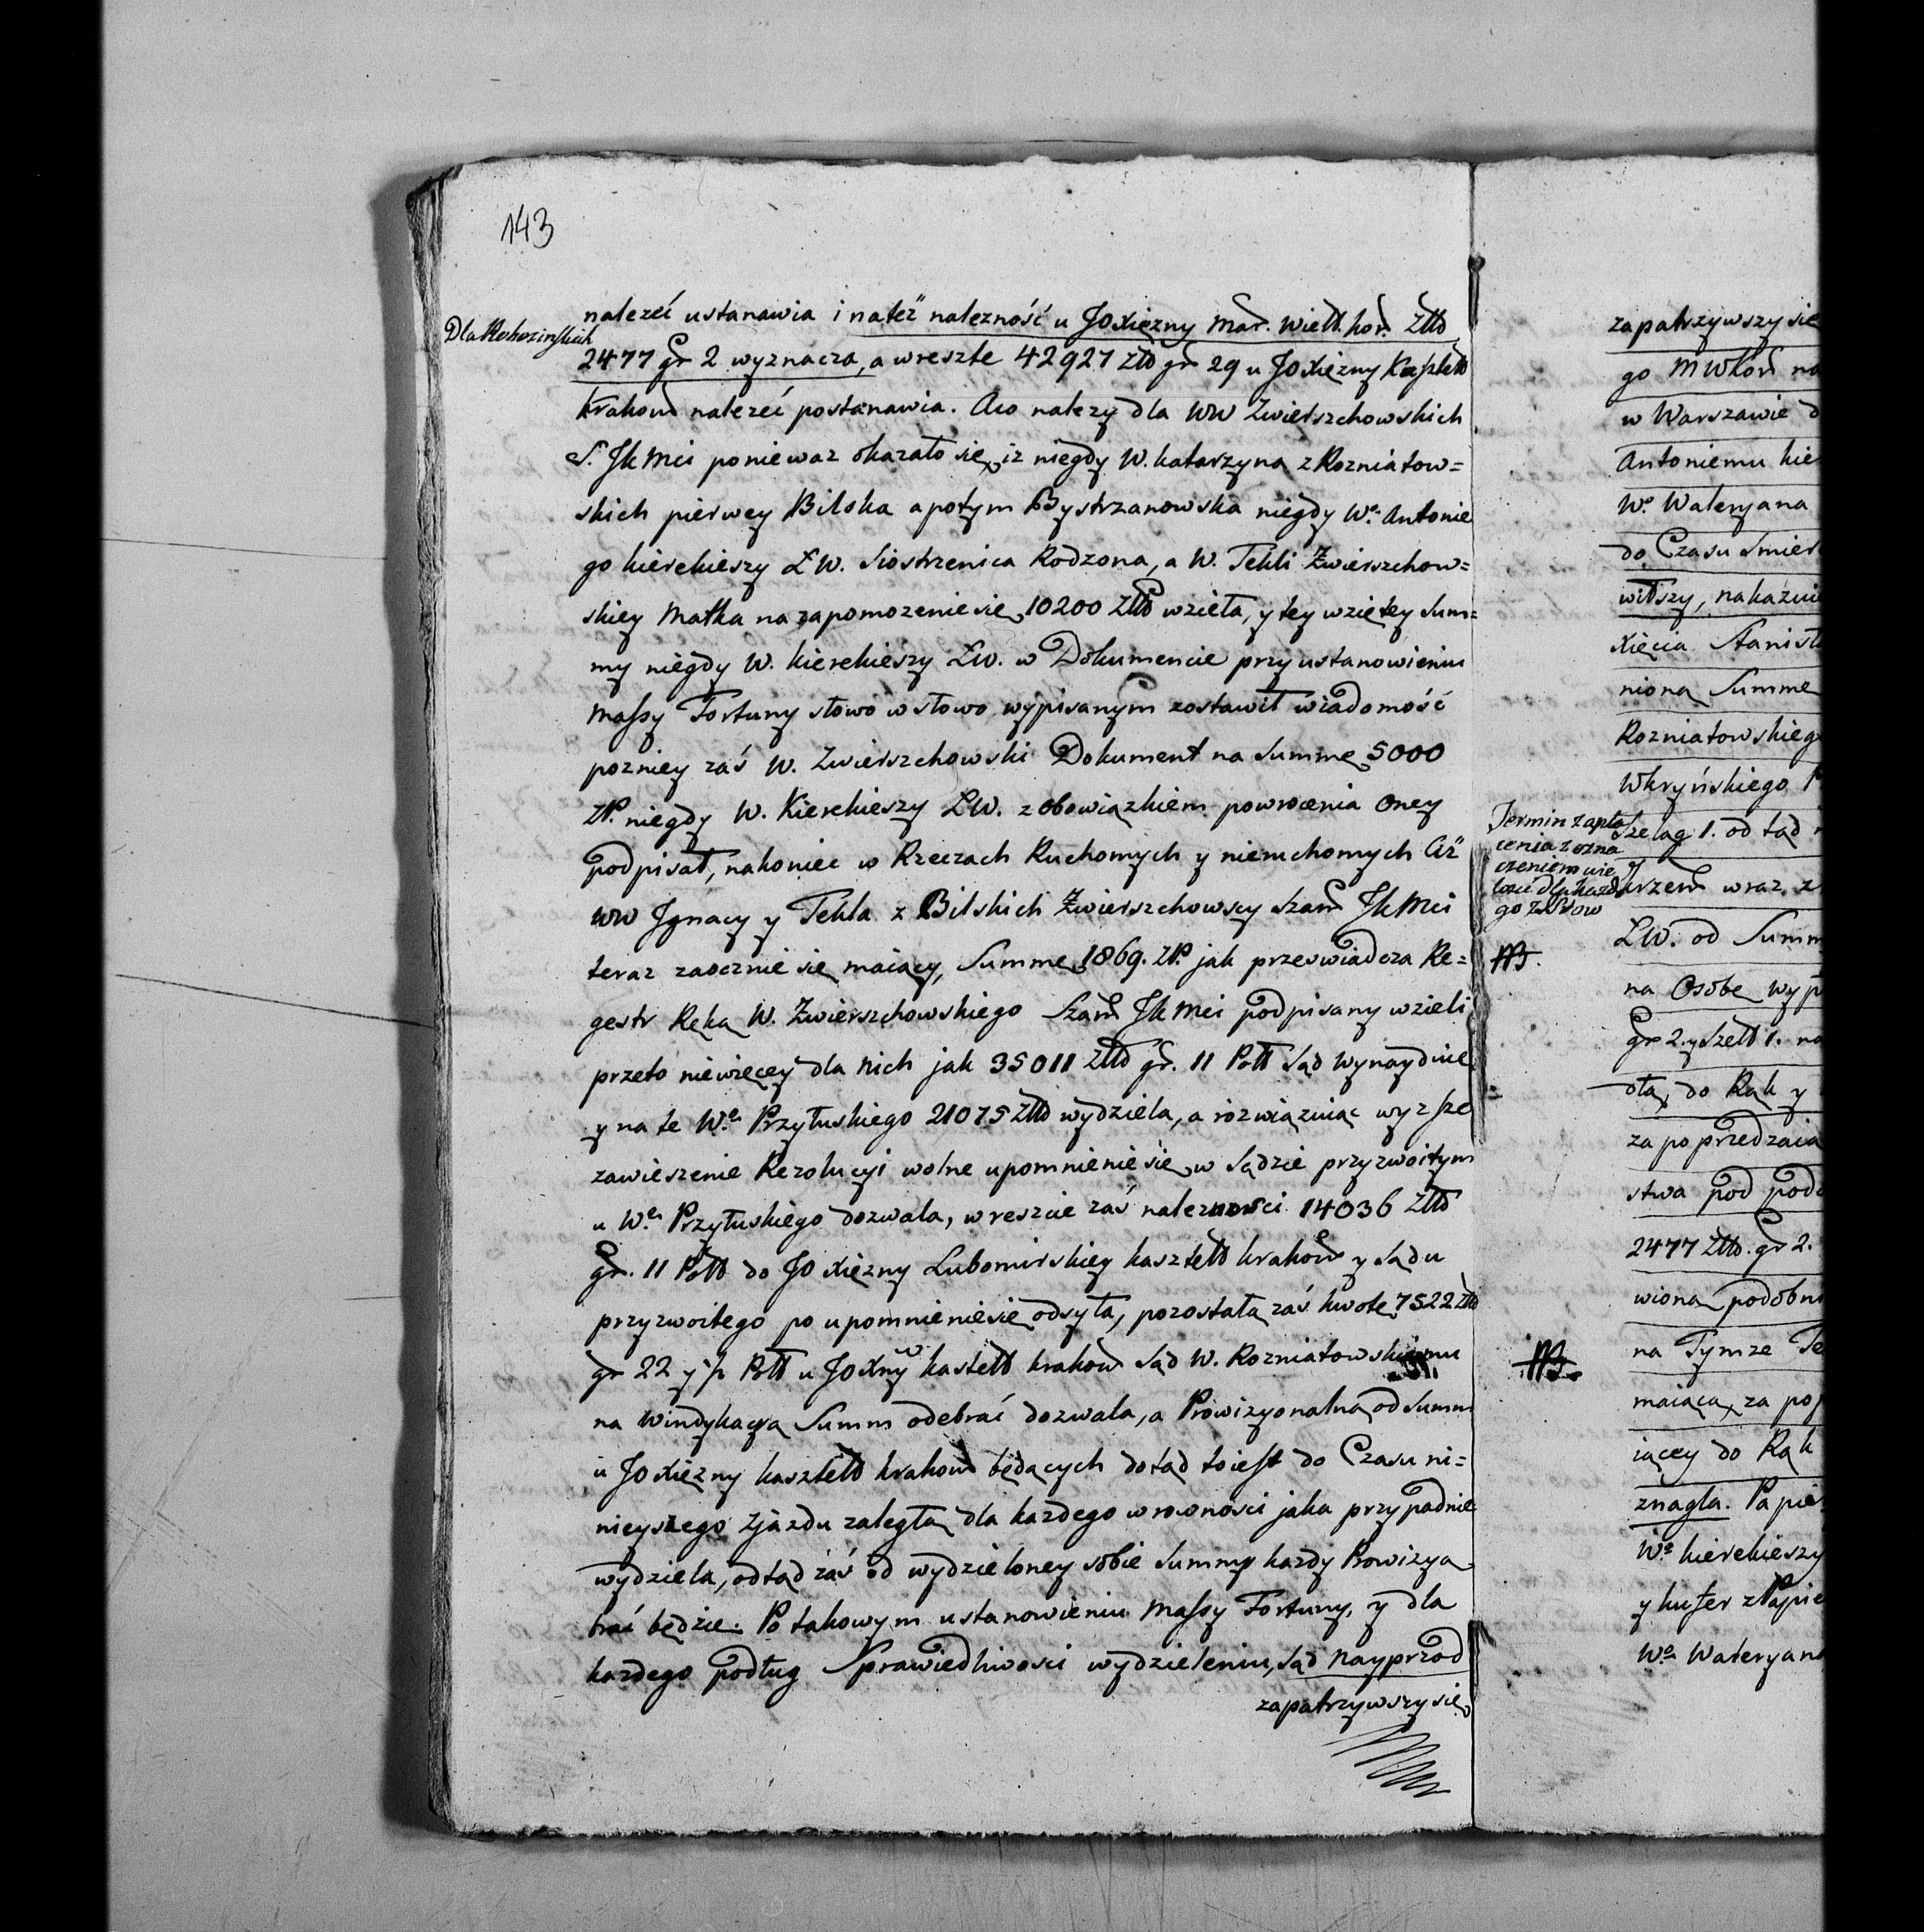 143
Dla Rohozinskich
należeć ustanawia i natęż należność u JOXiężny Mar. Wielk. kor. Złtd
2477 gr 2 wyznacza, a wreszte 42927 Złd gr 29 u JOXiężny Kasztelld
krakowd należeć postanawia. Aco należy dla WW Zwierszchowskich
S. JKMci poniewaz okazało się, iż niegdy W. Katarzyna z Rozniatow=
skich pierwey Bilska a potym Bystrzanowska niegdy Wo. Antonie
go kierekieszy ŁW. Siostrzenica Rodzona, a W. Tekli Zwierszchow=
skiey Matka na zapomożenie się 10200 Złtd wzieła, y tey wziętey Sum=
my niegdy W. kierekieszy ŁW. w Dokumencie przy ustanowieniu
Massy Fortuny słowo w słowo wypisanym zostawił wiadomość
pozniey zaś W. Zwierszchowski Dokument na Summę 5000
ZP. niegdy W. Kierekieszy ŁW. z obowiązkiem powrócenia oney
podpisał, nakoniec w Rzeczach Ruchomych y nieruchomych Ciż
WW Jgnacy y Tekla z Bilskich Zwierszchowscy Szamd JKMci
teraz zaocznie się maiący, Summę 1869. ZP. jak przeswiadcza Re=
gestr Ręką W. Zwierszchowskiego Szamd JKMci podpisany wzieli
przeto niewięcey dla nich jak 35011 Złtd gr. 11 Półl Sąd wynayduie
y na te Wo. Przyłuskiego 21075 Złtd wydziela, a rozwiązuiąc wyzsze
zawieszenie Rezolucyi wolne upomnienie się w Sądzie przyzwoitym
u Wo. Przyłuskiego dozwala, w reszcie zaś należności 14036 Złtd
gr. 11 Półl do JO Xiężny Lubomirskiey kasztelld krakowd y Sądu
przyzwoitego po upomnienie się odsyła, pozostałą zaś kwotę 7522 złtd
gr 22 y p Półl u JOXny kastelld krakowd Sąd W. Rozniatowskiemu
na Windykacyą Summ odebrać dozwala, a Prowizyonalną od Summ
u JOXiężny kasztelld krakowd będących dotąd toiest do Czasu ni=
nieyszego zjazdu zaległą dla każdego w rowności jaka przypadnie
wydziela, odtąd zaś od wydzieloney sobie Summy każdy Prowizyą
brać będzie. Po takowym ustanowieniu Massy Fortuny, y dla
każdego podług Sprawiedliwości wydzieleniu, Sąd nayprzod
zapatrzywszy się
zapatrzywszy się
go MWkord na
w Warszawie d
Antoniemu kie
Wo. Waleryana
do Czasu Smier
wiłszy, nakazuie
Xięcia Stanisł
nioną Summę
Rozniatowskieg
Wkryńskiego
Termin zapła
cenia z ozna
czeniem wie
lości dla każd
go ZWSrow
Szeląg 1. od tąd
krzemd wraz z
ŁW. od Summ
NB.
na Osobę wyp
gr 2. y Szeld 1. na
dłą, do Rąk y
za poprzedzaią
stwa pod pod
2477 Złtd. gr 2.
wioną podobn
na Tymże Te
NB.
maiącą, za pop
iącey do Rąk
znagla. Papie
Wo. kierekieszy
y kufer z Papie
Wo. Waleryan